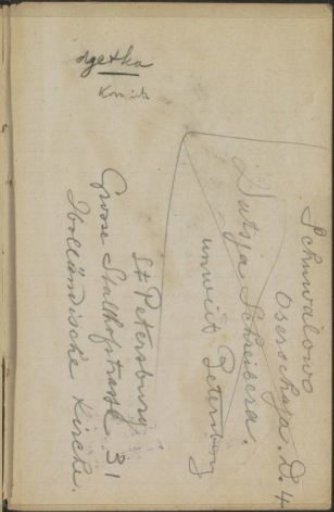 Schuwalowo
Oserskaja. D. 4
Dutzja Schreibera.
unweit Petersburg
St Petersburg.
Grosse Stallhofstrasse 31
Holländische Kirche.